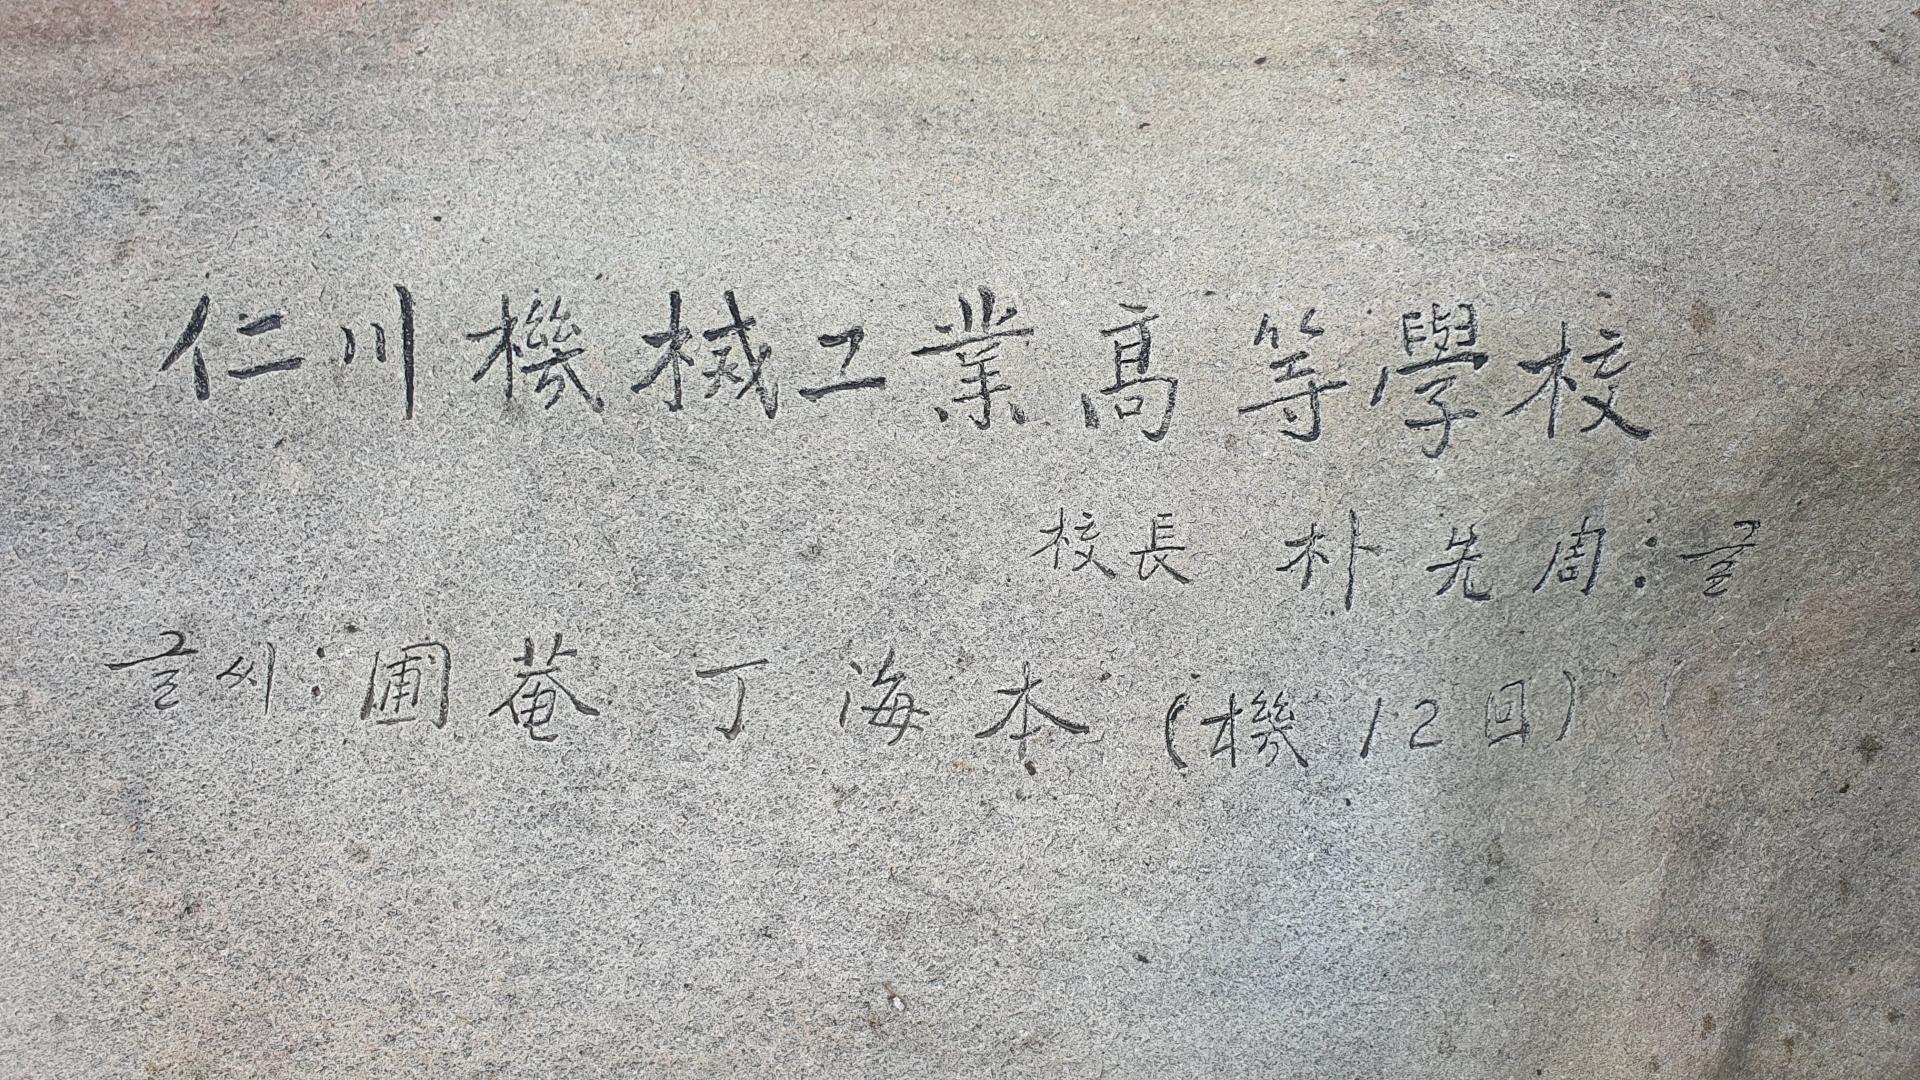 仁川機械工業高等學校
校長 朴先周:글
글씨:圃菴 丁海本 (機12回)